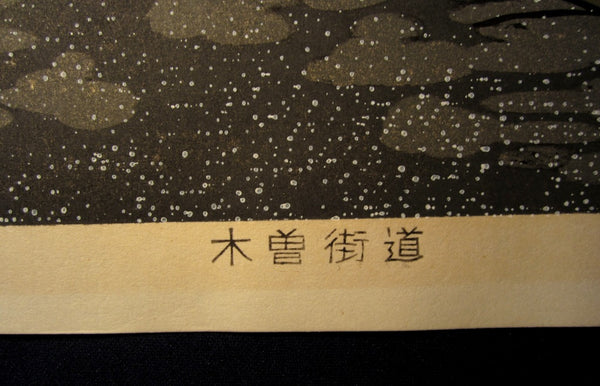 木曽街道